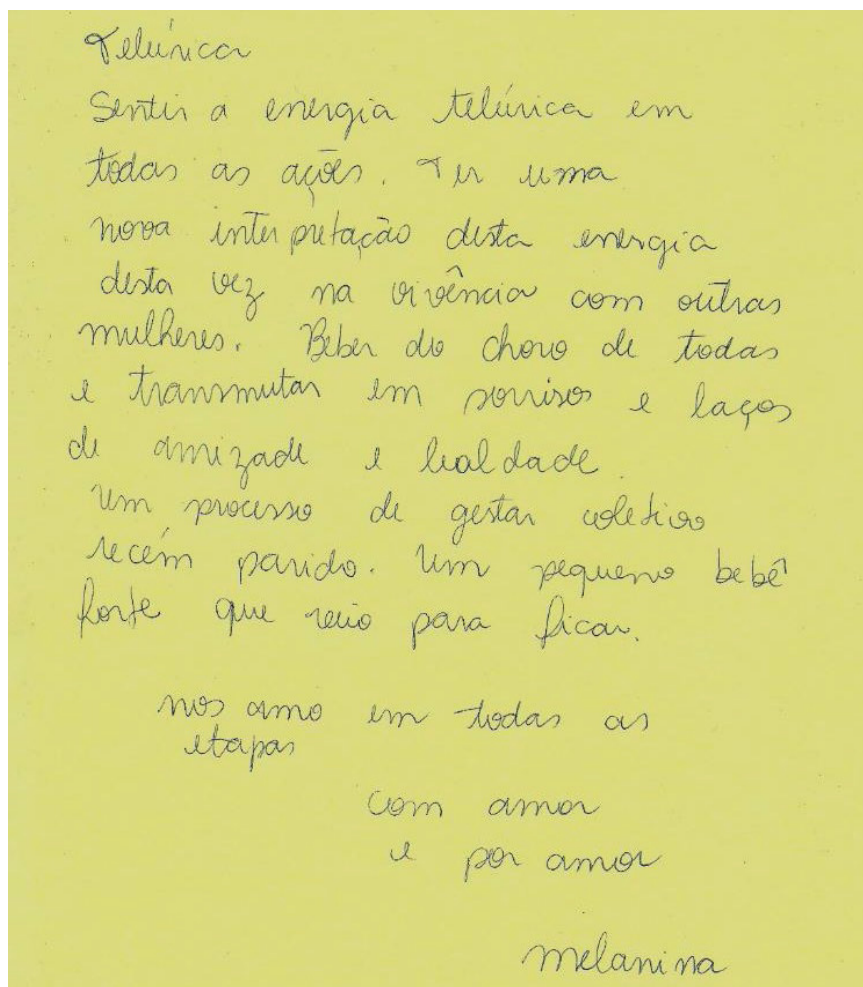 Telúrica
Sentir a energia telúrica em
todas as ações. Ter uma
nova interpretação desta energia
desta vez na vivência com outras
mulheres. Beber do choro de todas
e transmutar em sorrisos e laços
de amizade e lealdade.
Um processo de gestar coletivo
recém parido. Um pequeno bebê
forte que veio para ficar.
nos amo em todas as
etapas
com amor
e por amor
melanina